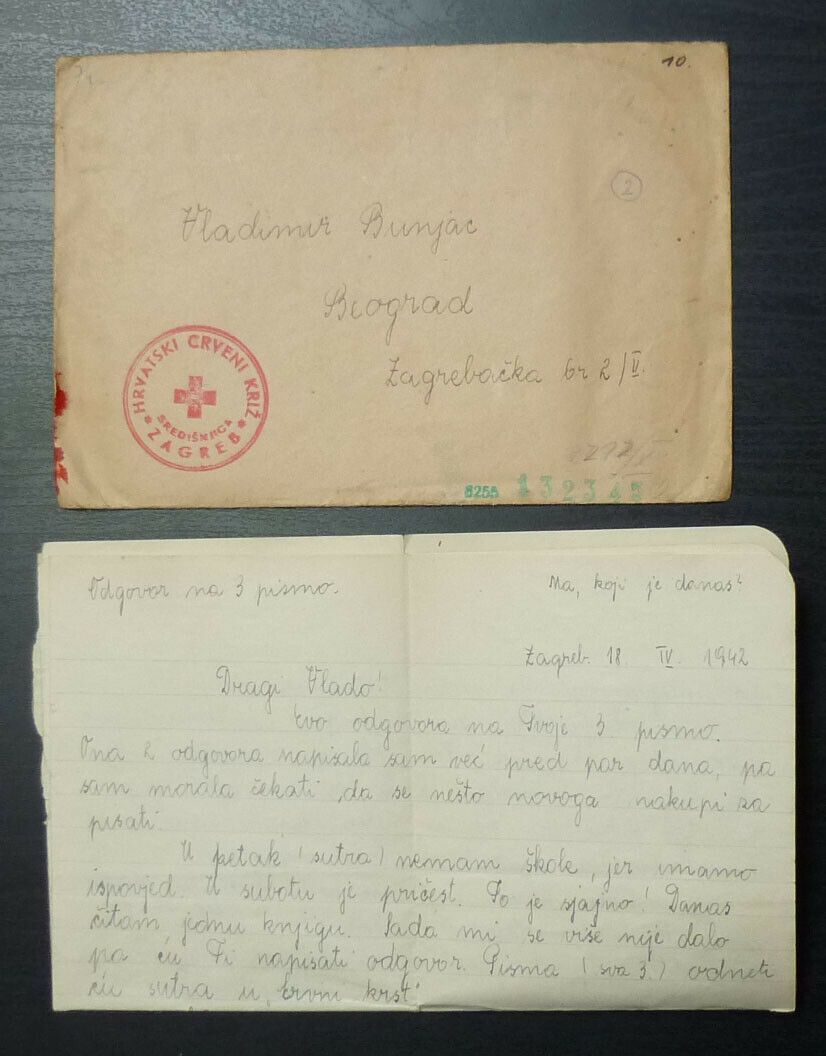 10.
2
Vladimir Bunjac
Beograd
Zagrebačka br 2/II.
HRVATSKI CRVENI KRIŽ
SREDIŠNJICA
* ZAGREB *
6255 132345
Odgovor na 3 pismo.
Ma, koji je danas?
Zagreb. 18. IV. 1942
Dragi Vlado!
Evo odgovora na Tvoje 3. pismo.
Ona 2 odgovora napisala sam već pred par dana, pa
sam morala čekati, da se nešto novoga nakupi za
pisati.
U petak (sutra) nemam škole, jer imamo
ispovjed. U subotu je pričest. To je sjajno! Danas
čitam jednu knjigu. Sada mi se više nije dalo
pa ću Ti napisati odgovor. Pisma (sva 3.) odneti
ću sutra u „Crvni krst"